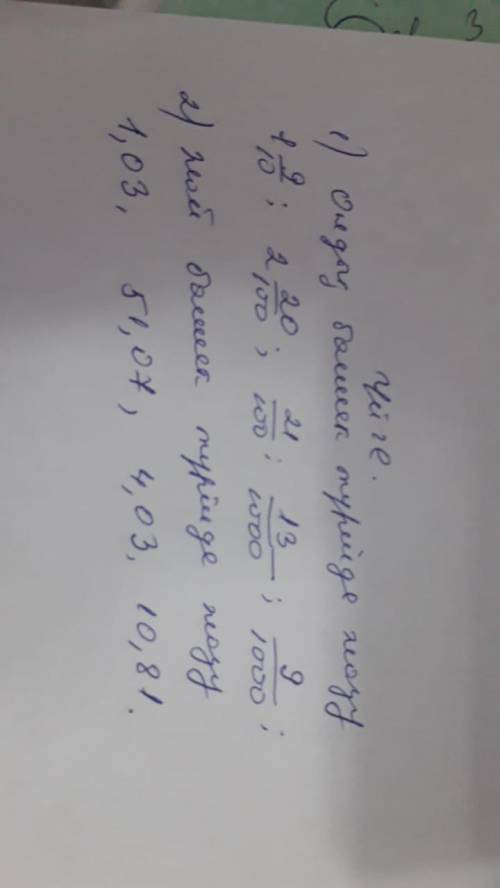 Үйге.
1) Ондық бөлшек түрінде жазу
1 9/10; 2 20/100; 21/100; 13/1000; 9/1000;
2) жай бөлшек түрінде жазу
1,03, 51,07, 4,03, 10,81.